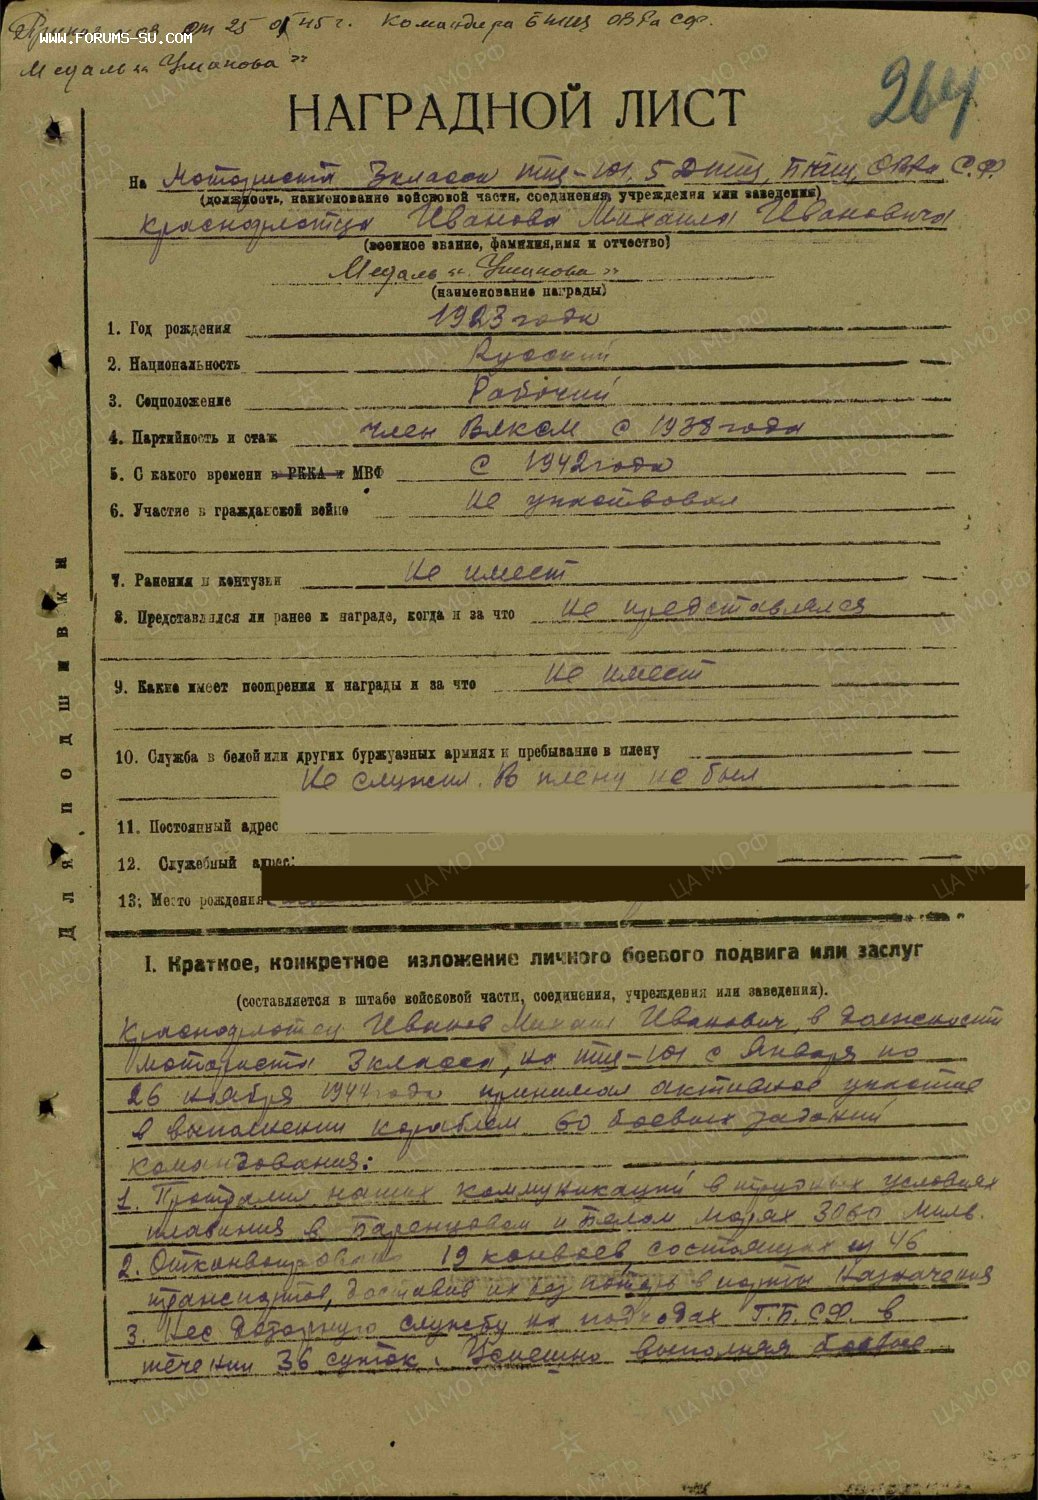 Приказ от 25 45 г. Командира БТЩ ОВРа СФ.
www.forums-su.com
Медаль "Ушакова"
264
НАГРАДНОЙ ЛИСТ
На Моториста 3 класса ТЩ-101, 5 ДТЩ, БТЩ, ОВРа С.Ф
(должность, наименование войсковой части, соединения, учреждения или заведения)
краснофлотца Иванова Михаила Ивановича
(военное звание, фамилия, имя и отчество)
Медаль "Ушакова"
(наименование награды)
1. Год рождения 1923 года
2. Национальность Русский
3. Соцположение Рабочий
4. Партийность и стаж член ВЛКСМ с 1938 года
5. С какого времени в РККА и МВФ с 1942 года
6. Участие в гражданской войне Не участвовал
7. Ранения и контузии Не имеет
8. Представлялся ли ранее к награде, когда и за что Не представлялся
9. Какие имеет поощрения и награды и за что Не имеет
10. Служба в белой или других буржуазных армиях и пребывание в плену
Не служил. В плену не был
11. Постоянный адрес
12. Служебный адрес:
13. Место рождения
Для подшивки
I. Краткое, конкретное изложение личного боевого подвига или заслуг
(составляется в штабе войсковой части, соединения, учреждения или заведения).
Краснофлотец Иванов Михаил Иванович, в должности
моториста 3 класса, на ТЩ-101 с Января по
26 ноября 1944 года принимал активное участие
в выполнении кораблем 60 боевых заданий
командования:
1. Протралил наших коммуникаций в трудных условиях
плавания в Баренцовом и Белом морях 3060 миль.
2. Отконвоировано 19 конвоев, состоящих из 46
транспортов, доставив их без потерь в порты Назначения
3. Нес дозорную службу на подходах Г.Б.С.Ф. в
течении 36 суток. Успешно выполняя боевые